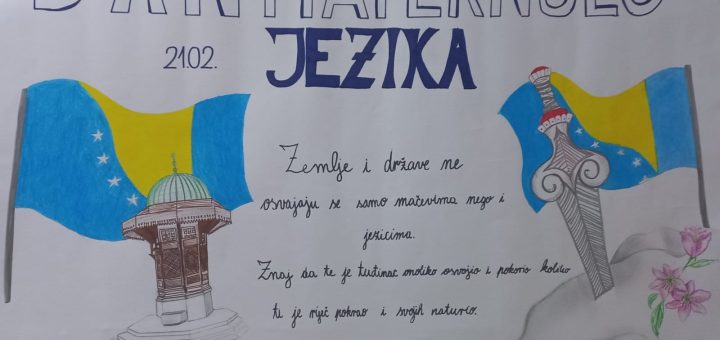 DAN MATERNJEG
JEZIKA
21.02.
Zemlje i države ne
osvajaju se samo mačevima nego i
jezicima.
Znaj da te je tuđinac onoliko osvojio i pokorio koliko
ti je riječ pokrao i svojih naturio.